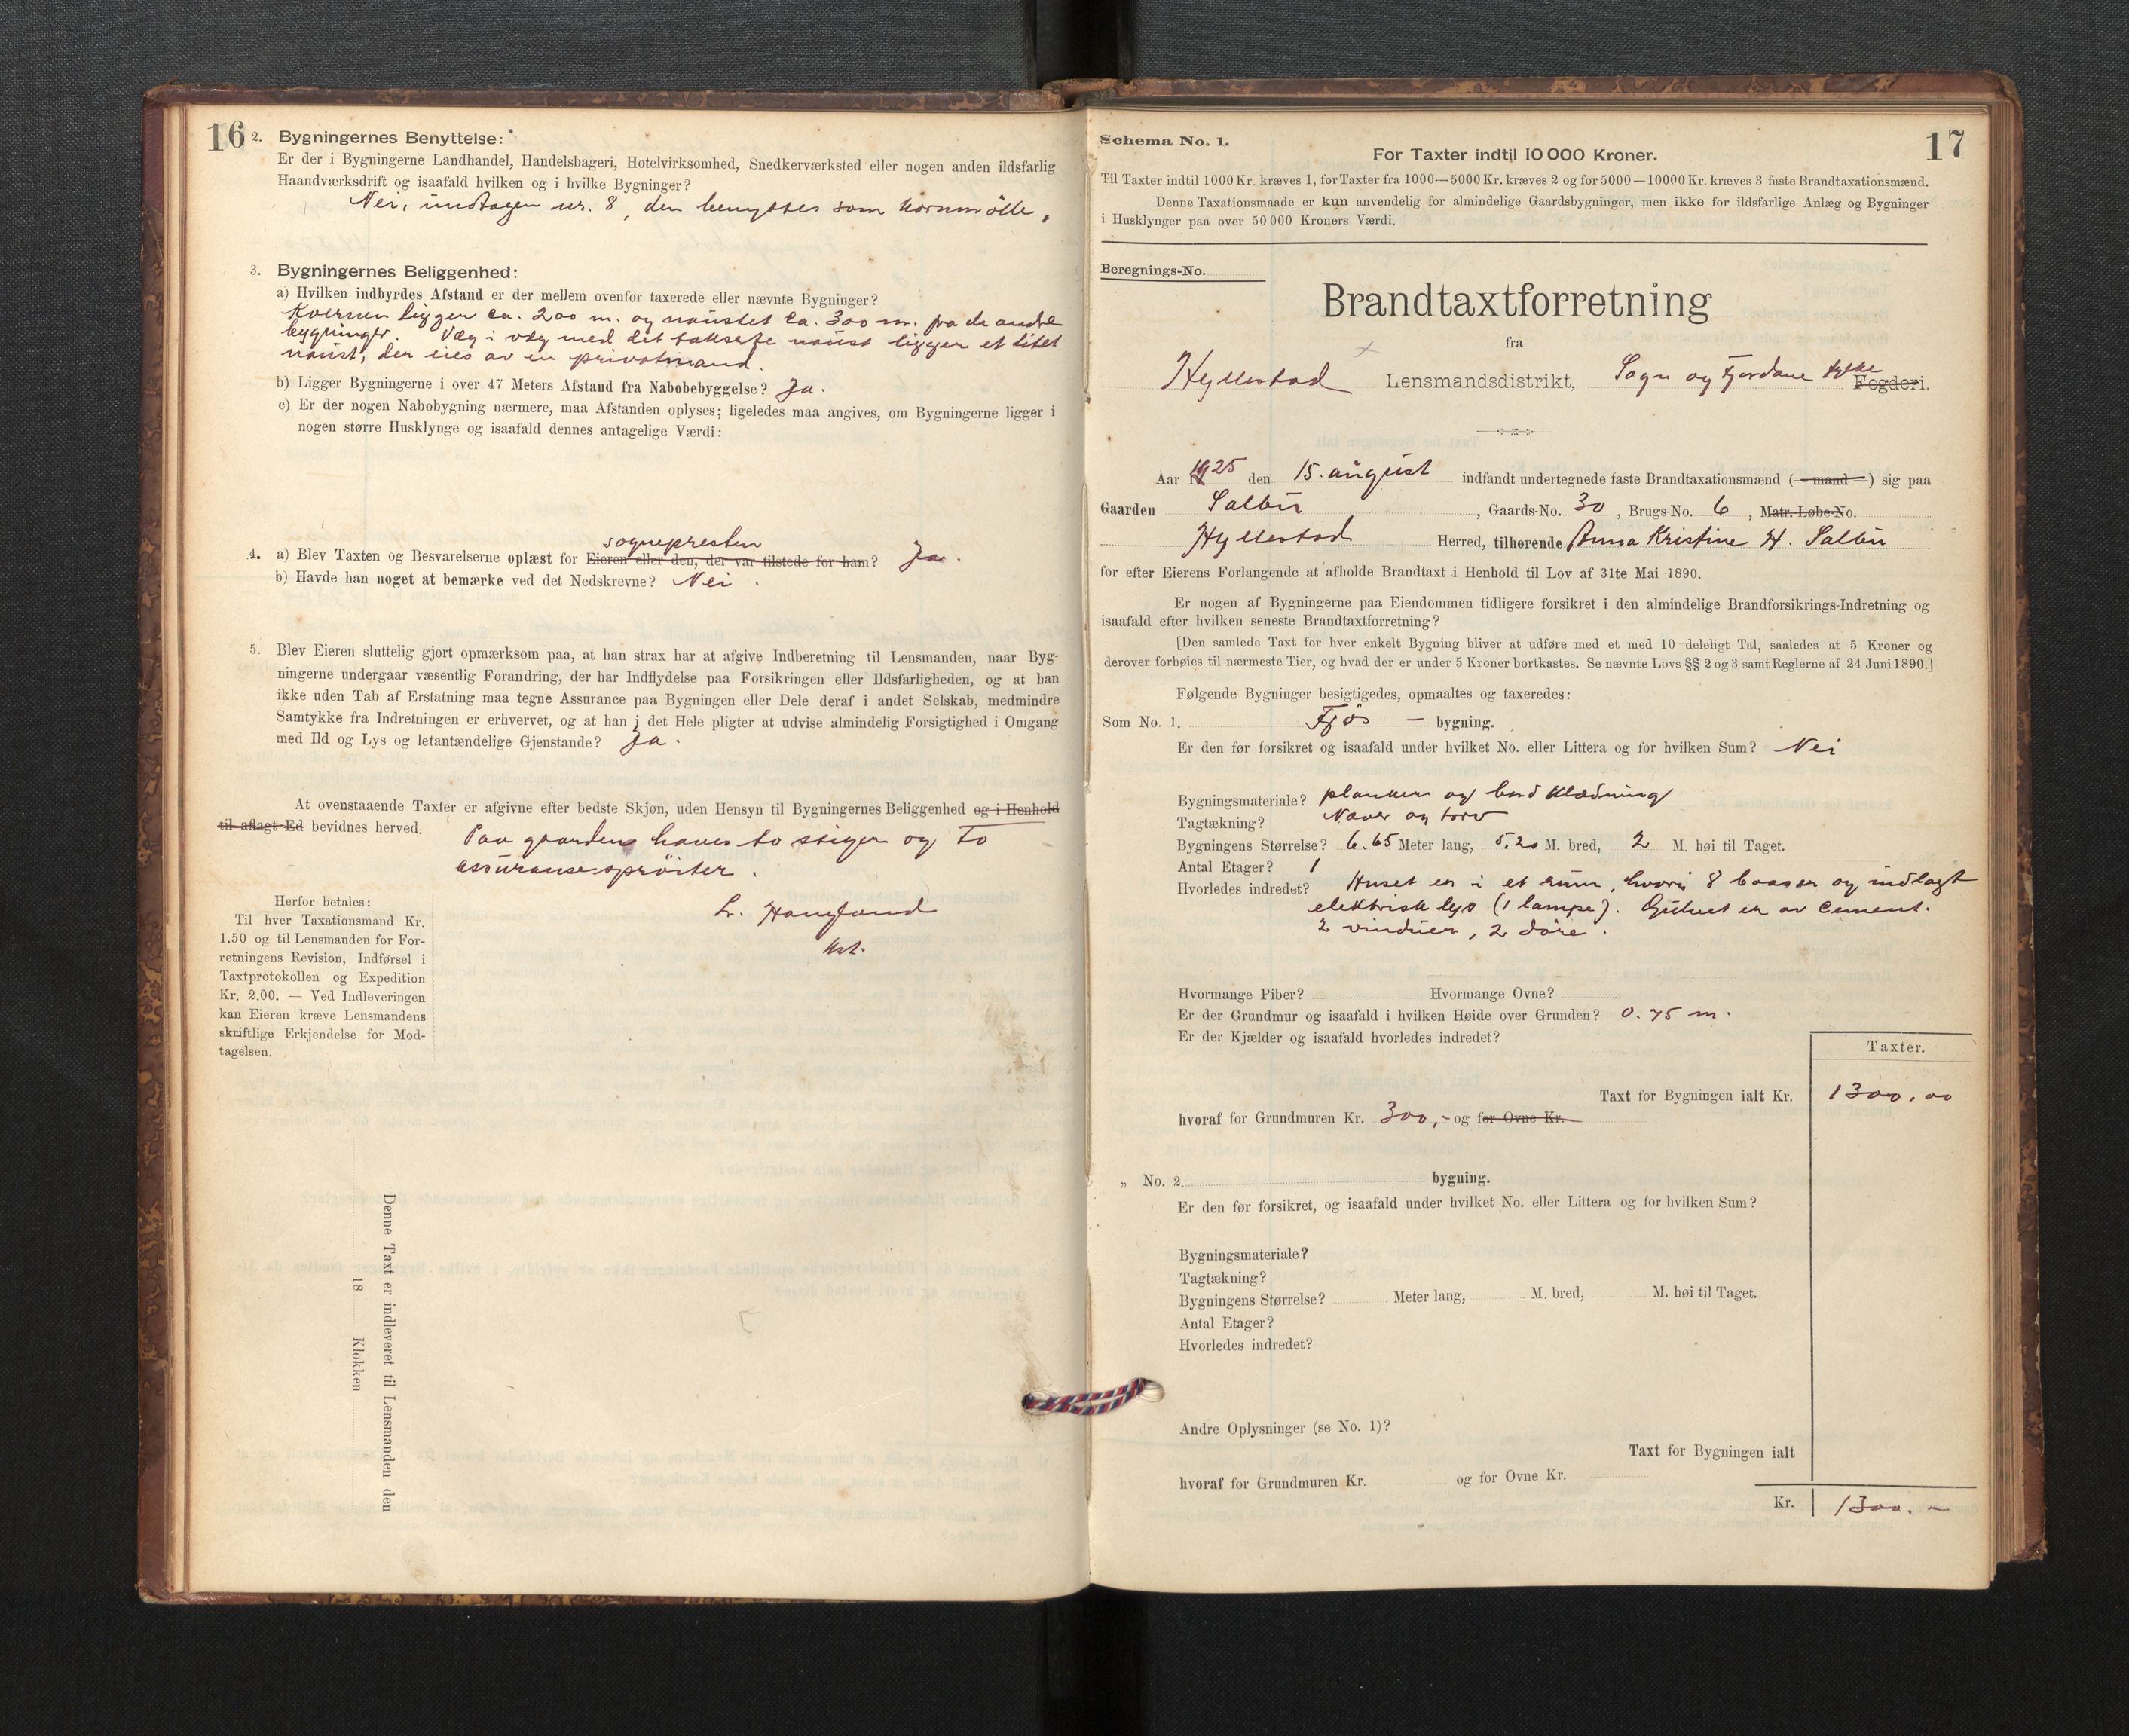 16
2. Bygningernes Benyttelse:
Er der i Bygningerne Landhandel, Handelsbageri, Hotelvirksomhed, Snedkerværksted eller nogen anden ildsfarlig
Haandværksdrift og isaafald hvilken og i hvilke Bygninger?
Nei, undtagen nr. 8, den benyttes som kornmølle.
3. Bygningernes Beliggenhed:
a) Hvilken indbyrdes Afstand er der mellem ovenfor taxerede eller nævnte Bygninger?
Kvernen ligger ca. 200 m. og naustet ca. 300 m. fra de andre
bygninger. Væg i væg med det takserte naust ligger et litet
naust, der eies av en privatmand.
b) Ligger Bygningerne i over 47 Meters Afstand fra Nabobebyggelse? Ja.
c) Er der nogen Nabobygning nærmere, maa Afstanden oplyses; ligeledes maa angives, om Bygningerne ligger i
nogen større Husklynge og isaafald dennes antagelige Værdi:
sognepresten
4. a) Blev Taxten og Besvarelserne oplæst for Eieren eller den, der var tilstede for ham? Ja.
b) Havde han noget at bemærke ved det Nedskrevne? Nei.
5. Blev Eieren sluttelig gjort opmærksom paa, at han strax har at afgive Indberetning til Lensmanden, naar Byg-
ningerne undergaar væsentlig Forandring, der har Indflydelse paa Forsikringen eller Ildsfarligheden, og at han
ikke uden Tab af Erstatning maa tegne Assurance paa Bygningen eller Dele deraf i andet Selskab, medmindre
Samtykke fra Indretningen er erhvervet, og at han i det Hele pligter at udvise almindelig Forsigtighed i Omgang
med Ild og Lys og letantændelige Gjenstande? Ja.
At ovenstaaende Taxter er afgivne efter bedste Skjøn, uden Hensyn til Bygningernes Beliggenhed og i Henhold
til aflagt Ed bevidnes herved.
Paa gaarden haves to stiger og to
assuransesprøiter.
L. Haugland
kst.
Herfor betales:
Til hver Taxationsmand Kr.
1.50 og til Lensmanden for For-
retningens Revision, Indførsel i
Taxtprotokollen og Expedition
Kr. 2.00. — Ved Indleveringen
kan Eieren kræve Lensmandens
skriftlige Erkjendelse for Mod-
tagelsen.
Denne Taxt er indleveret til Lensmanden den
18 Klokken
17
Schema No. 1.
For Taxter indtil 10 000 Kroner.
Til Taxter indtil 1000 Kr. kræves 1, for Taxter fra 1000—5000 Kr. kræves 2 og for 5000—10000 Kr. kræves 3 faste Brandtaxationsmænd.
Denne Taxationsmaade er kun anvendelig for almindelige Gaardsbygninger, men ikke for ildsfarlige Anlæg og Bygninger
i Husklynger paa over 50 000 Kroners Værdi.
Beregnings-No.
Brandtaxtforretning
fra
Hyllestad Lensmandsdistrikt, Sogn og Fjordane fylke Fogderi.
Aar 1925 den 15. august indfandt undertegnede faste Brandtaxationsmænd (—mand—) sig paa
Gaarden Salbu, Gaards-No. 30, Brugs-No. 6, Matr.-Løbe-No.
Hyllestad Herred, tilhørende Anna Kristine H. Salbu
for efter Eierens Forlangende at afholde Brandtaxt i Henhold til Lov af 31te Mai 1890.
Er nogen af Bygningerne paa Eiendommen tidligere forsikret i den almindelige Brandforsikrings-Indretning og
isaafald efter hvilken seneste Brandtaxtforretning?
[Den samlede Taxt for hver enkelt Bygning bliver at udføre med et med 10 deleligt Tal, saaledes at 5 Kroner og
derover forhøies til nærmeste Tier, og hvad der er under 5 Kroner bortkastes. Se nævnte Lovs §§ 2 og 3 samt Reglerne af 24 Juni 1890.]
Følgende Bygninger besigtigedes, opmaaltes og taxeredes:
Som No. 1. Fjøs — bygning.
Er den før forsikret og isaafald under hvilket No. eller Littera og for hvilken Sum? Nei
Bygningsmateriale? planker og bord klædning
Tagtækning? Næver og torv
Bygningens Størrelse? 6.65 Meter lang, 5.20 M. bred, 2 M. høi til Taget.
Antal Etager? 1
Hvorledes indredet? Huset er i et rum, hvori 8 baaser og indlagt
elektrisk lys (1 lampe). Gulvet er av cement.
2 vinduer, 2 døre.
Hvormange Piber? Hvormange Ovne?
Er der Grundmur og isaafald i hvilken Høide over Grunden? 0.75 m.
Er der Kjælder og isaafald hvorledes indredet?
Taxter.
Taxt for Bygningen ialt Kr. 1300.00
hvoraf for Grundmuren Kr. 300,- og for Ovne Kr.
„ No. 2 bygning.
Er den før forsikret, og isaafald under hvilket No. eller Littera og for hvilken Sum?
Bygningsmateriale?
Tagtækning?
Bygningens Størrelse? Meter lang, M. bred, M. høi til Taget.
Antal Etager?
Hvorledes indredet?
Andre Oplysninger (se No. 1)?
Taxt for Bygningen ialt
hvoraf for Grundmuren Kr. og for Ovne Kr.
Kr. 1300.-